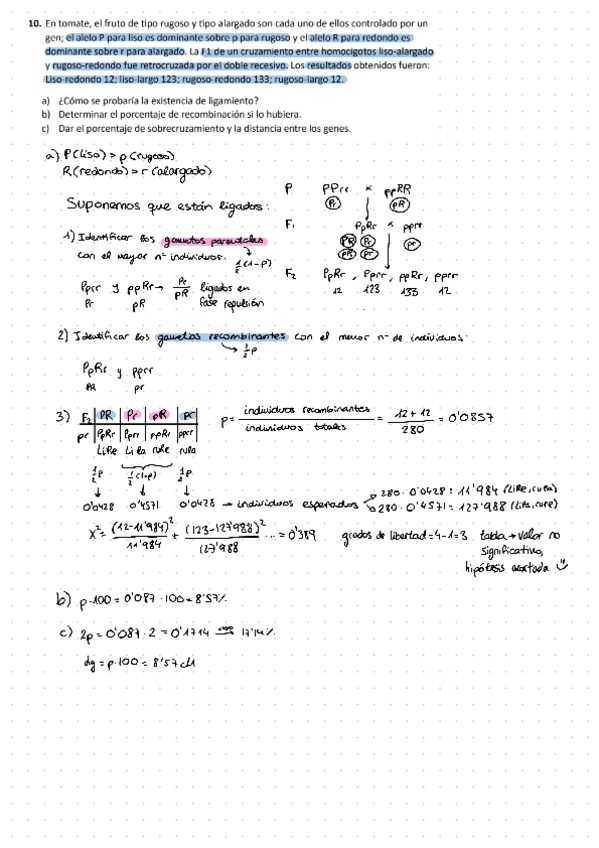 10. En tomate, el fruto de tipo rugoso y tipo alargado son cada uno de ellos controlado por un
gen; el alelo P para liso es dominante sobre p para rugoso y el alelo R para redondo es
dominante sobre r para alargado. La F1 de un cruzamiento entre homocigotos liso-alargado
y rugoso-redondo fue retrocruzada por el doble recesivo. Los resultados obtenidos fueron:
Liso-redondo 12; liso-largo 123; rugoso-redondo 133; rugoso-largo 12.
a) ¿Cómo se probaría la existencia de ligamiento?
b) Determinar el porcentaje de recombinación si lo hubiera.
c) Dar el porcentaje de sobrecruzamiento y la distancia entre los genes.
a) P(liso) > p(rugoso)
R(redondo) > r(alargado)
P PPrr x ppRR
Pr pR
Suponemos que están ligados:
F1 PpRr x pprr
PR Pr pr
pR pr
1) Identificar los gametos parentales
con el mayor nº individuos. ½(1-p)
F2 PpRr, Pprr, ppRr, pprr
12 123 133 12
Pprr y ppRr → Pr/pR ligados en
Pr pR fase repulsión
2) Identificar los gametos recombinantes con el menor nº de individuos:
→ ½p
PpRr y pprr
PR pr
3) F2 PR Pr pR pr
pr PpRr Pprr ppRr pprr
LiRe Li la ruRe rula
p = individuos recombinantes / individuos totales = 12 + 12 / 280 = 0'0857
½p ½(1-p) ½p
0'0428 0'4571 0'0428 → individuos esperados
280 · 0'0428 = 11'984 (LiRe, rula)
280 · 0'4571 = 127'988 (Lila, ruRe)
X² = (12-11'984)² / 11'984 + (123-127'988)² / 127'988 ... = 0'389
grados de libertad = 4-1 = 3 tabla → valor no
significativo,
hipótesis aceptada
b) p·100 = 0'087 · 100 = 8'57%
c) 2p = 0'087 · 2 = 0'1714 → 17'14%
dg = p·100 = 8'57cM